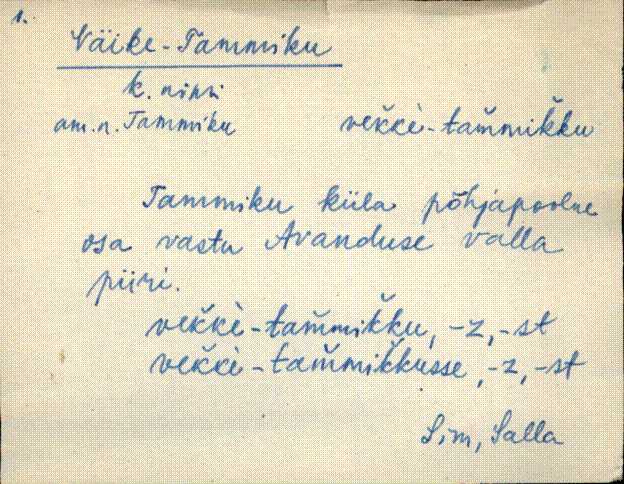 1.
Väike-Tammiku
k. nimi
am.n. Tammiku vek̆k̆è-tam̆mik̆ku
Tammiku küla põhjapoolne
osa vastu Avanduse valla
piiri.
vek̆k̆è-tam̆mik̆ku, -z, -st
vek̆k̆è-tam̆mik̆kusse, -z, -st
Sim, Salla